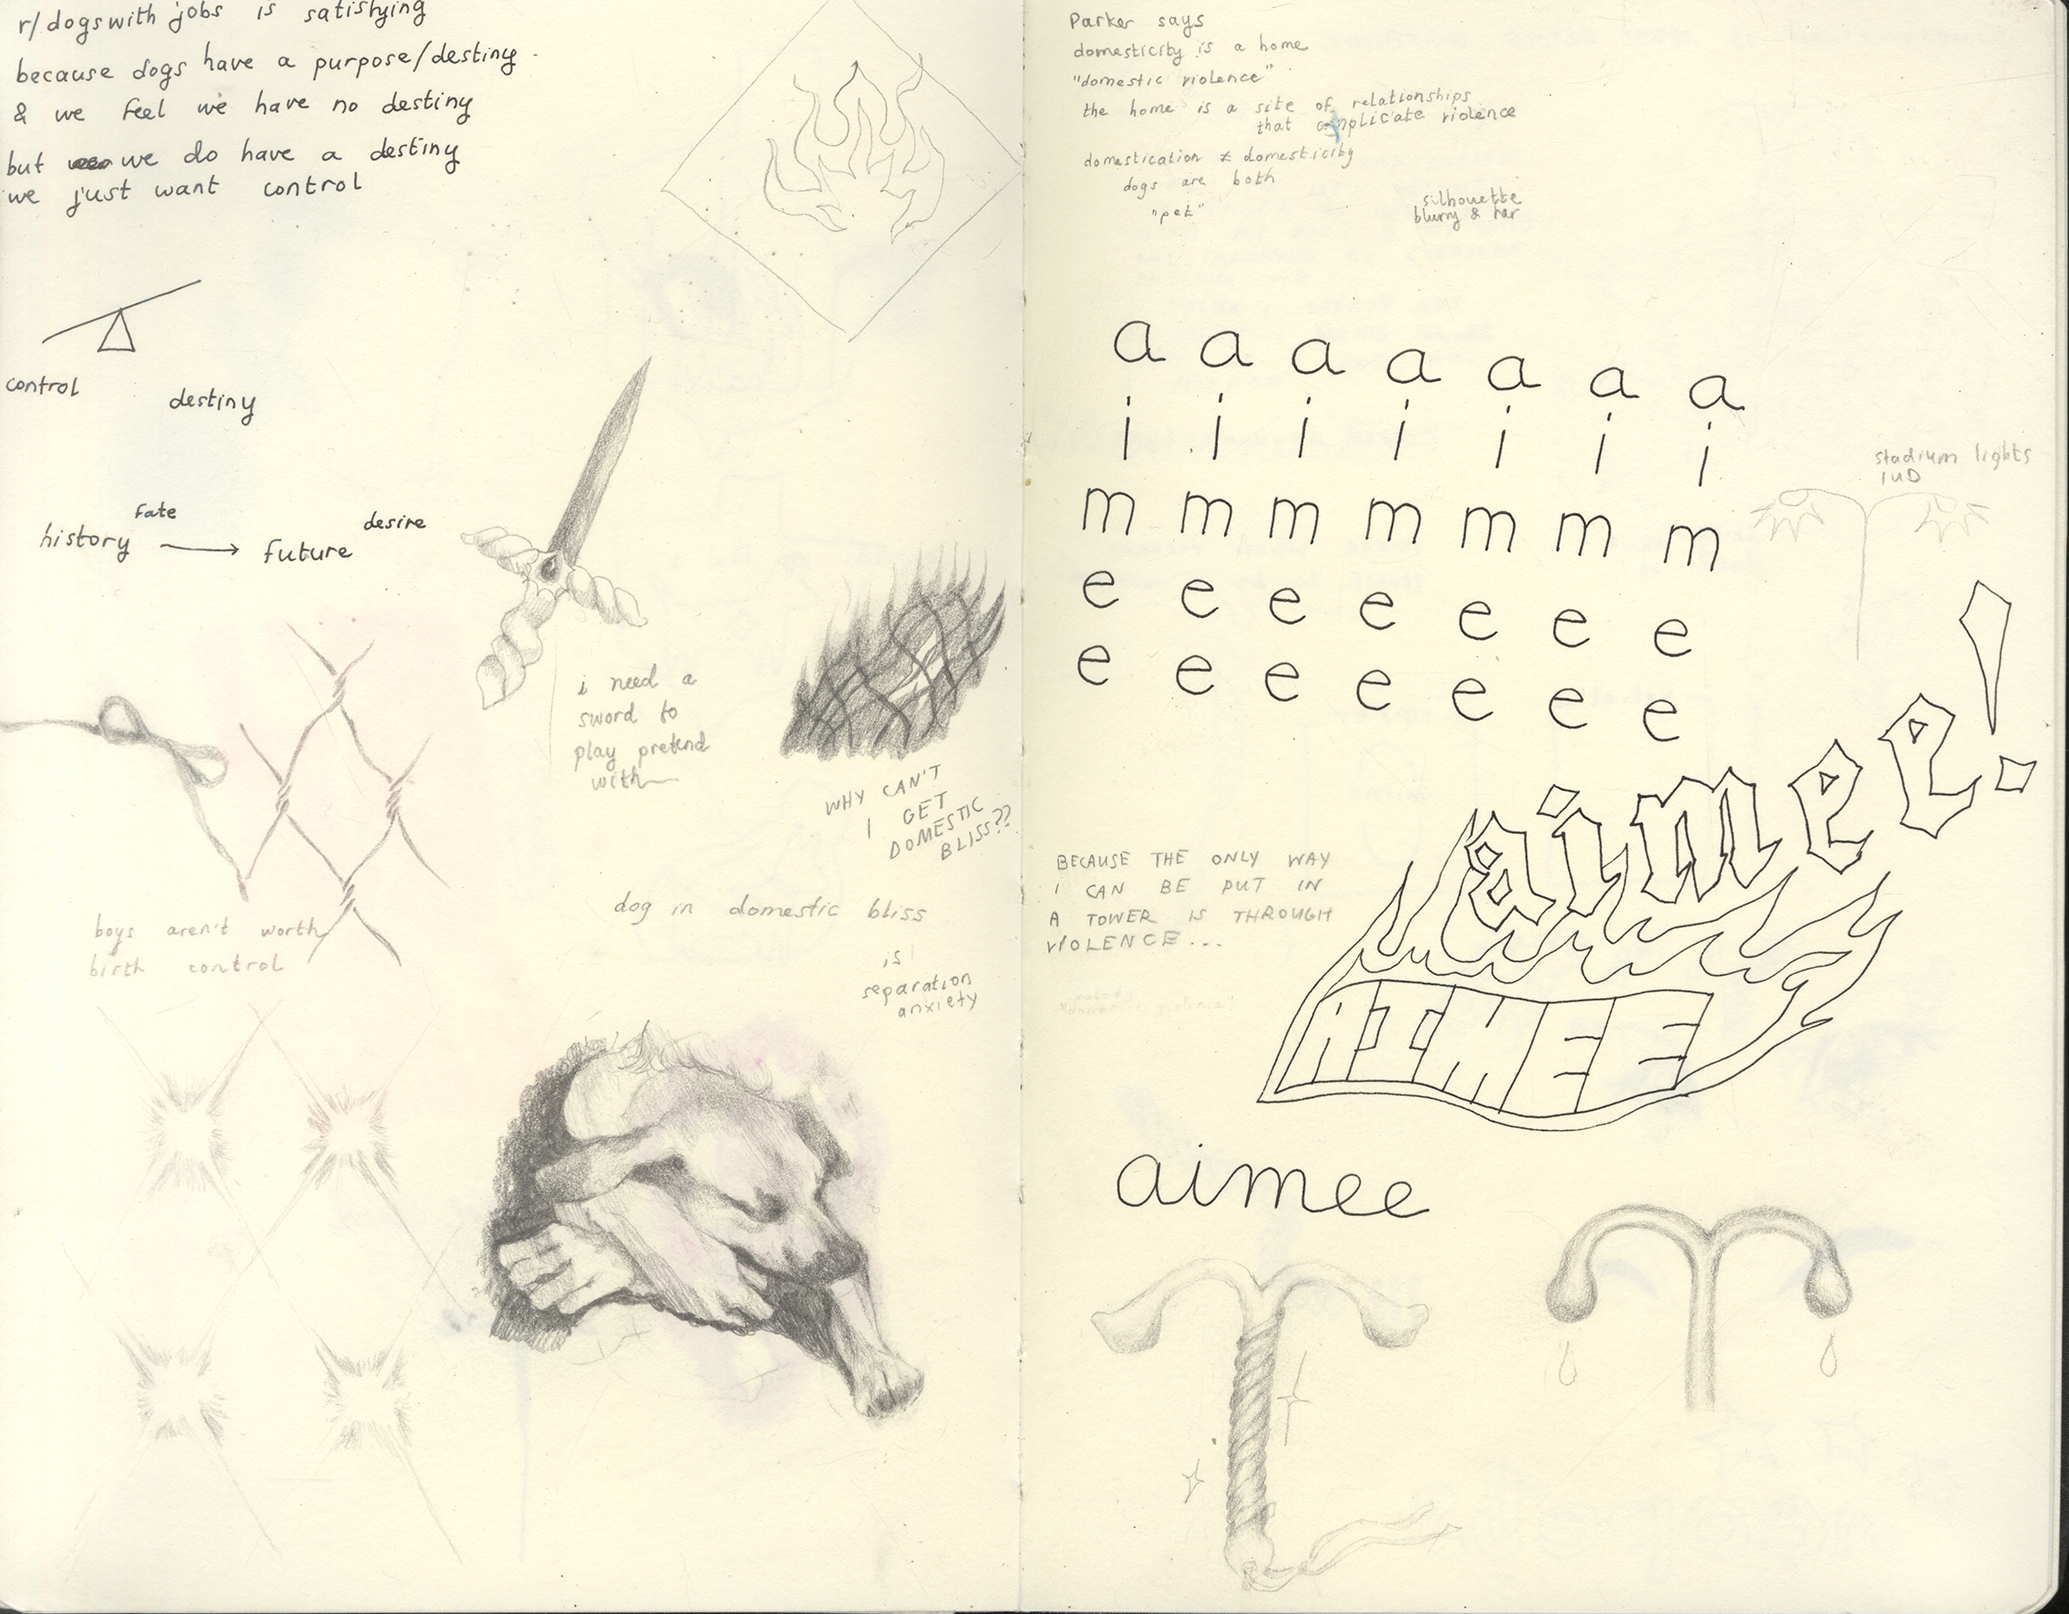 r/dogswith jobs is satisfying
because dogs have a purpose/destiny
& we feel we have no destiny
but we do have a destiny
we just want control
control
destiny
fate
history → future
desire
i need a
sword to
play pretend
with
WHY CAN'T
I GET
DOMESTIC
BLISS??
boys aren't worth
birth control
dog in domestic bliss
is
separation
anxiety
Parker says
domesticity is a home
"domestic violence"
the home is a site of relationships
that complicate violence
domestication ≠ domesticity
dogs are both
"pet"
silhouette
blurry &
a a a a a a a
i i i i i i i
m m m m m m m
e e e e e e e
e e e e e e e
stadium lights
IUD
aimee!
BECAUSE THE ONLY WAY
I CAN BE PUT IN
A TOWER IS THROUGH
VIOLENCE...
AIMEE
aimee